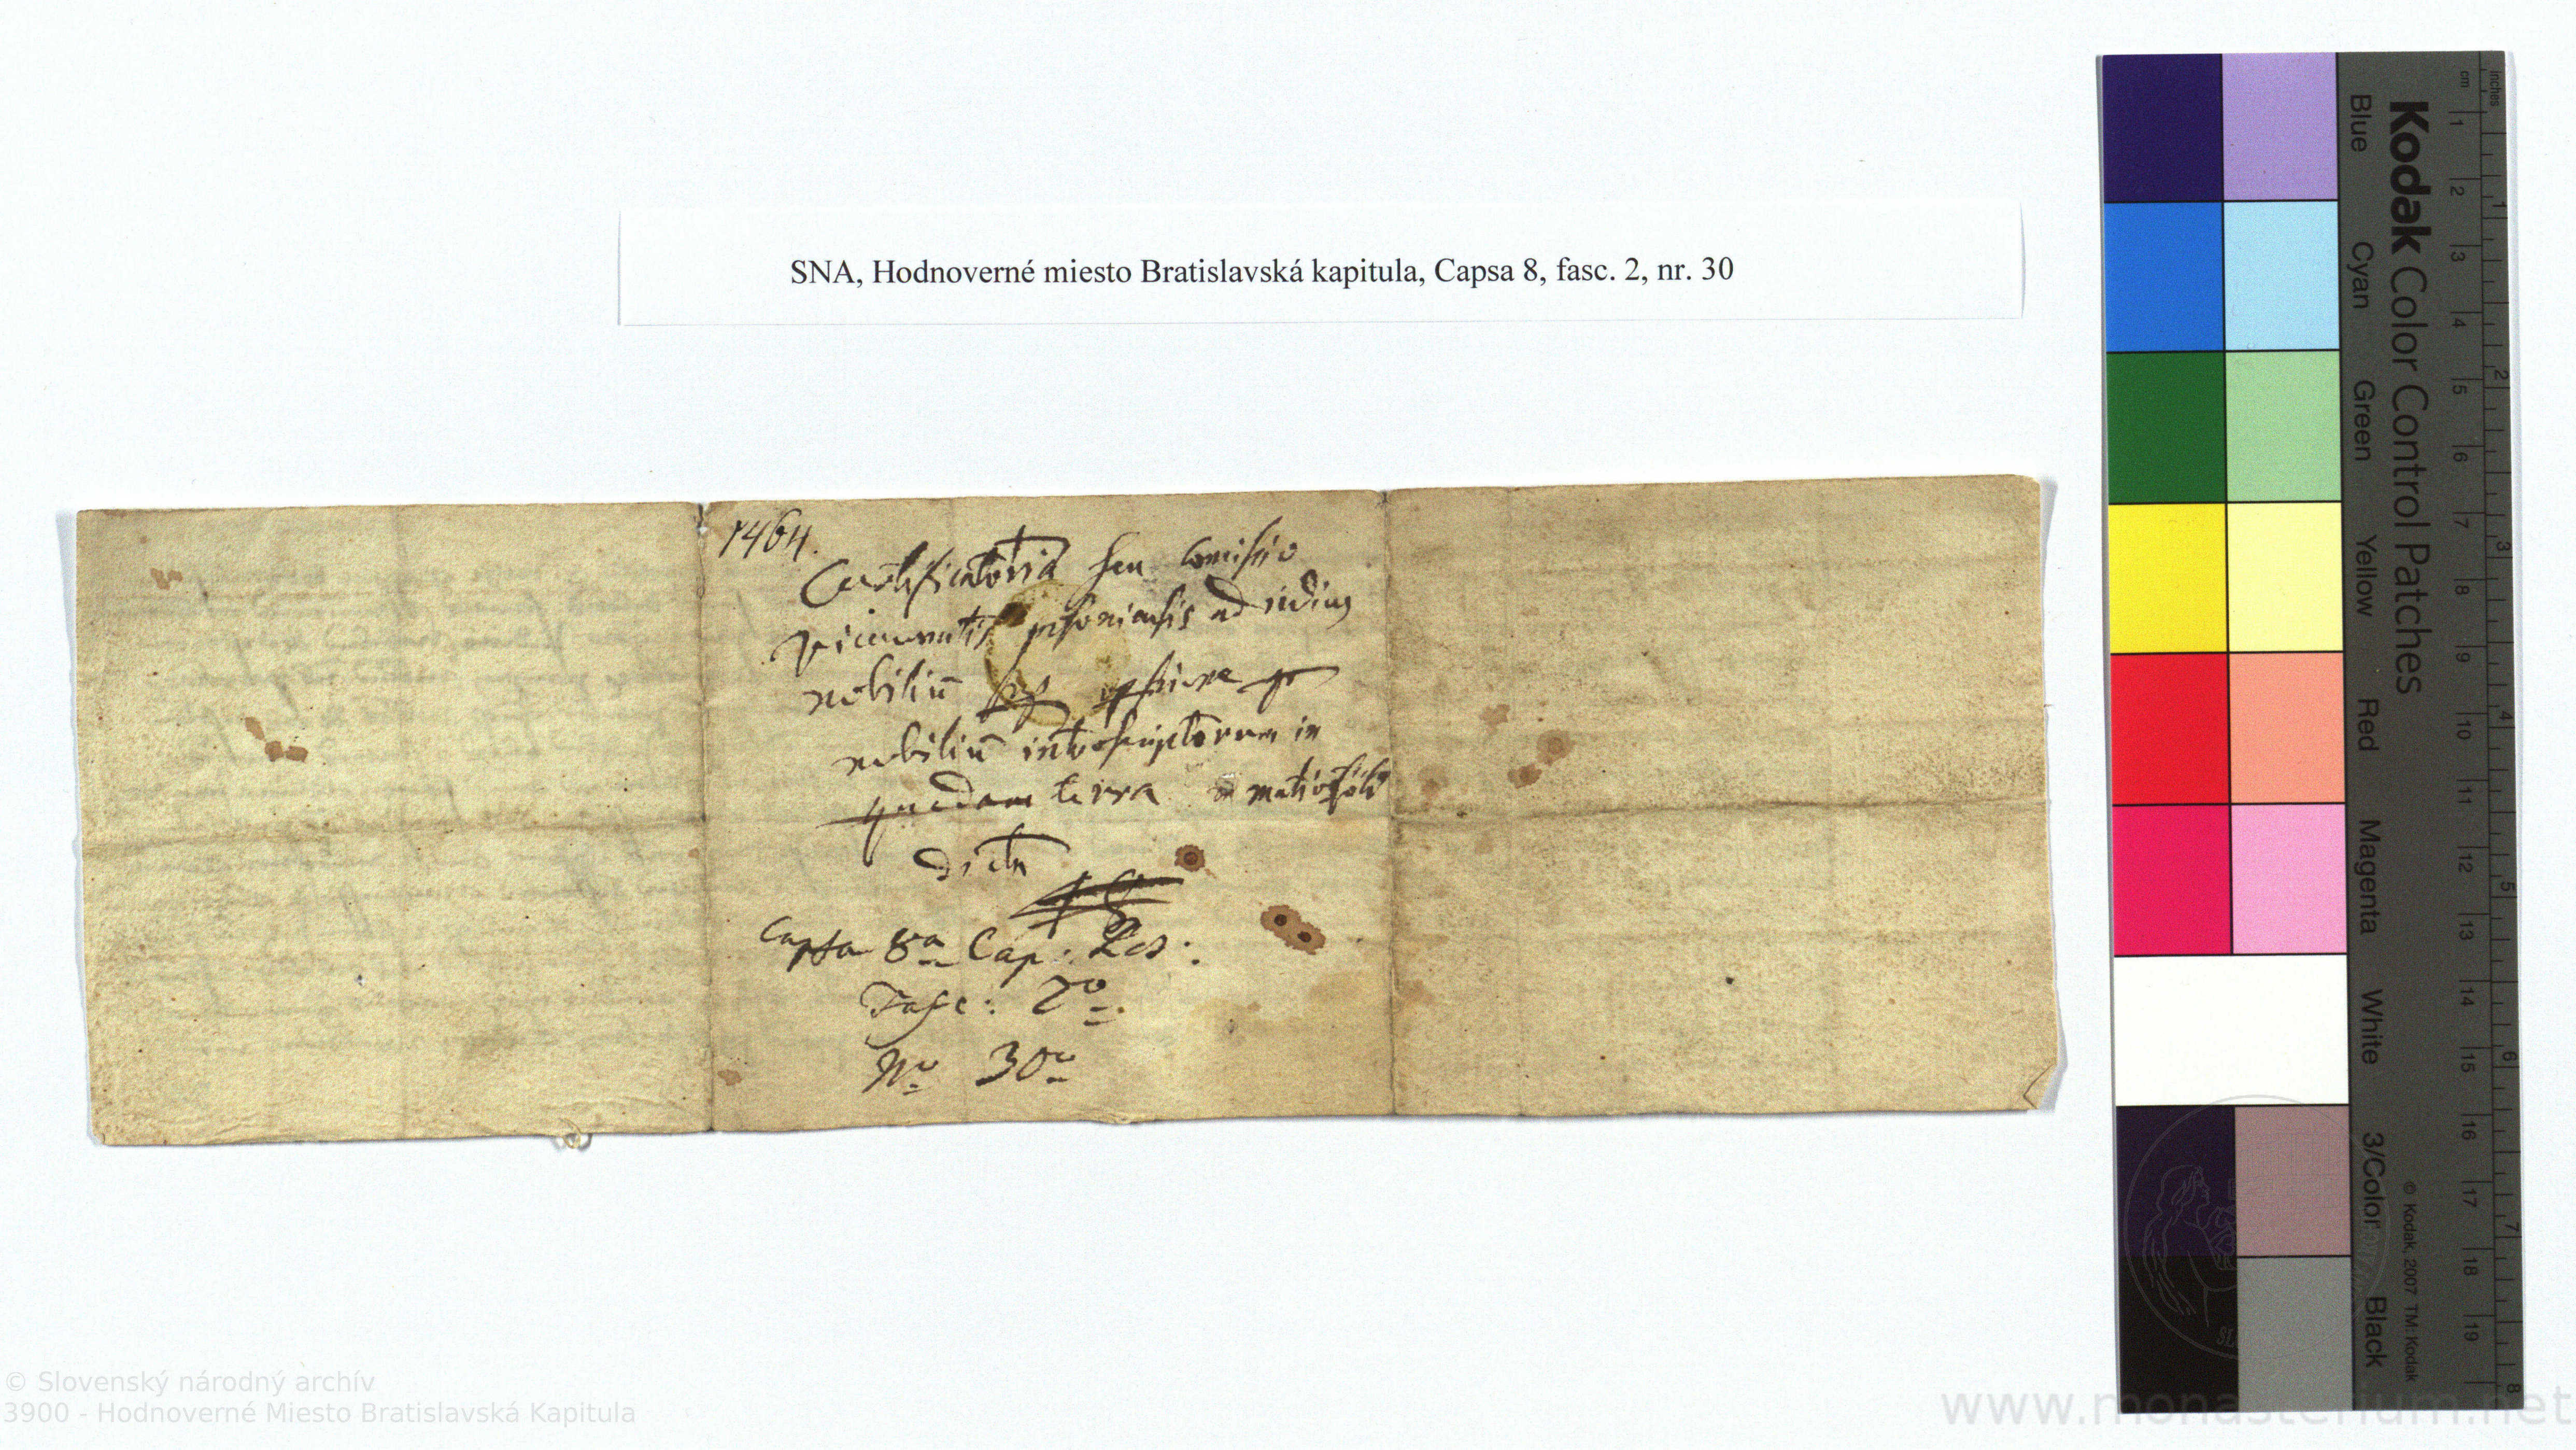 SNA, Hodnoverné miesto Bratislavská kapitula, Capsa 8, fasc. 2, nr. 30
1464.
Certificatoria seu comissio
posoniensis ad
nobiliū
nobiliū introscriptorum in
quadam terra
dicta
Capsa 8ᵃ Cap:
Fasc: 2º.
Nº 30º
Kodak Color Control Patches
Blue Cyan Green Yellow Red Magenta White 3/Color Black
cm 1 2 3 4 5 6 7 8 9 10 11 12 13 14 15 16 17 18 19
inches 1 2 3 4 5 6 7 8
© Kodak, 2007 TM: Kodak
© Slovenský národný archív
3900 - Hodnoverné Miesto Bratislavská Kapitula
www.monasterium.net